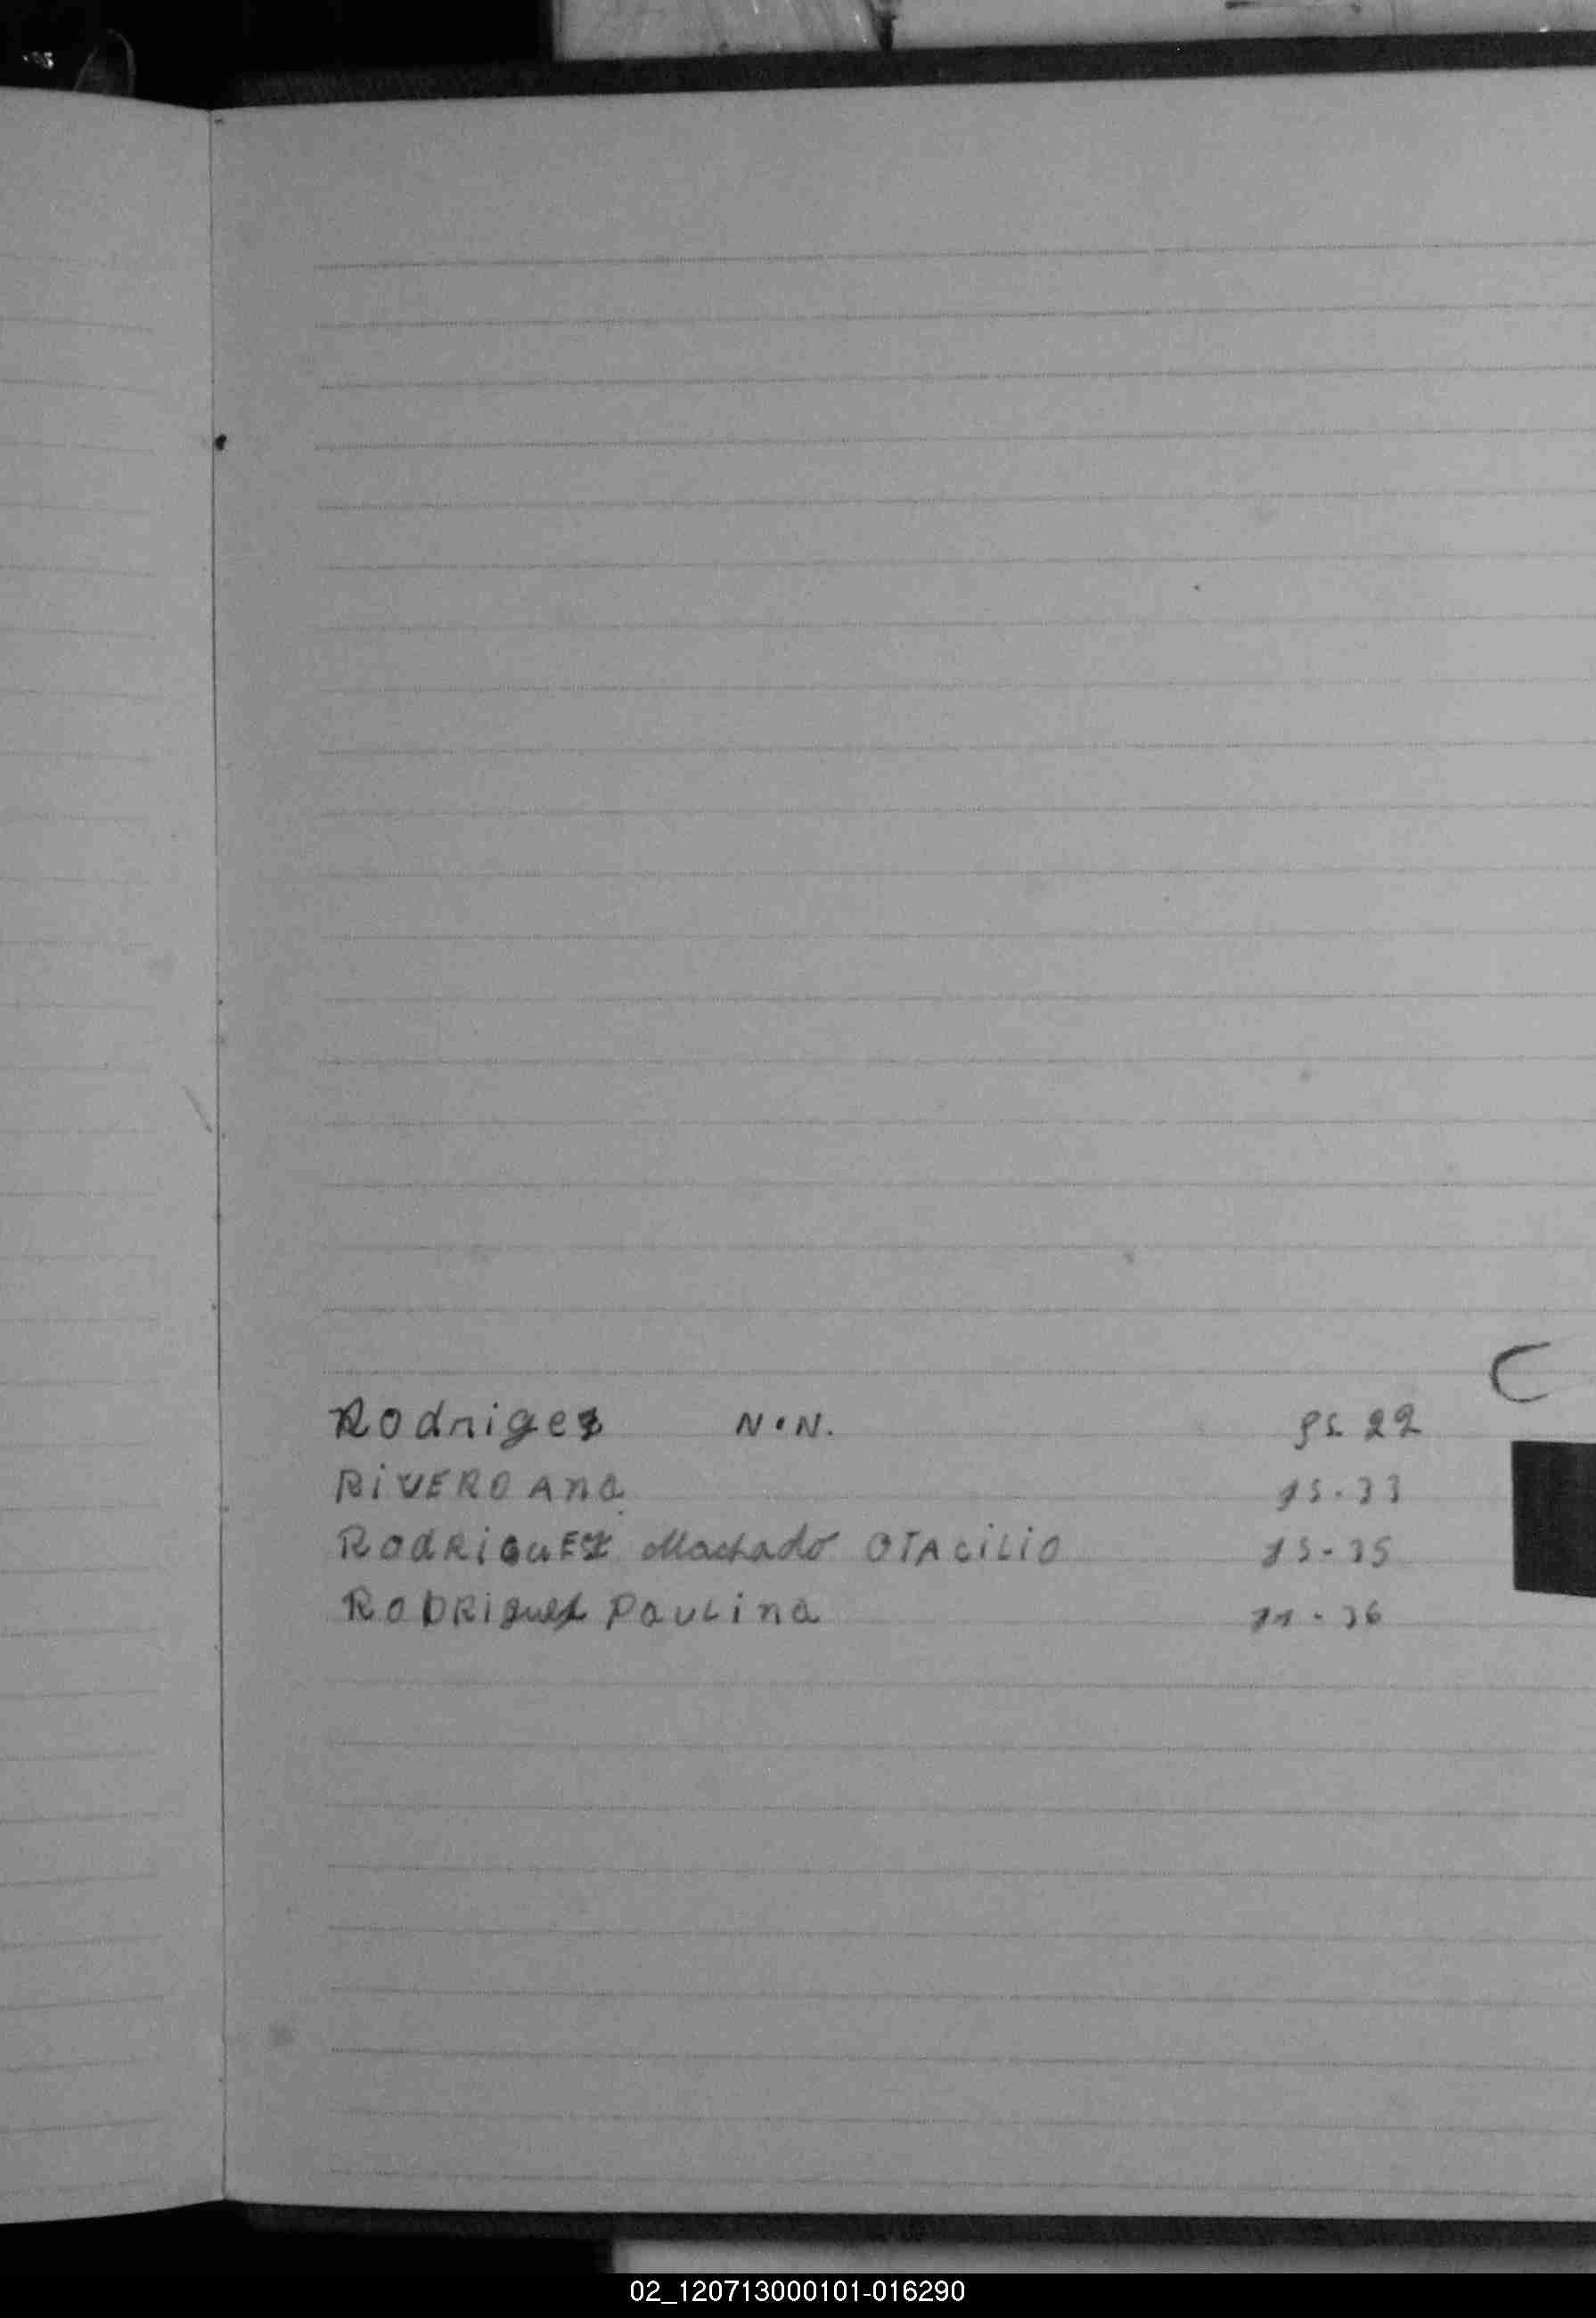 C
Rodrigez N.N. ps. 22
RiVERO Ana 15.33
RodRiguEz Machado OTAciLiO 15-35
RoDRiguez PauLina 11-36
02_120713000101-016290